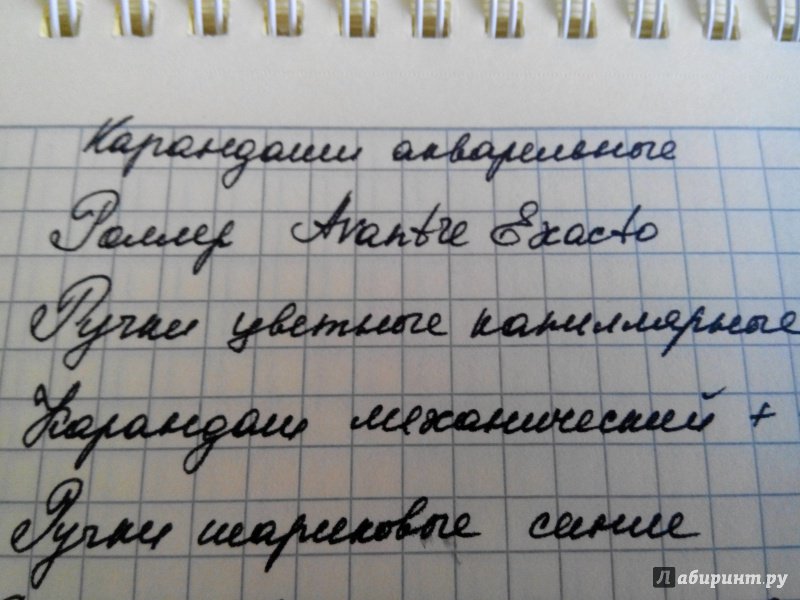 Карандаши акварельные
Роллер Avantre Exacto
Ручки цветные капиллярные
Карандаш механический +
Ручки шариковые синие
Лабиринт.ру